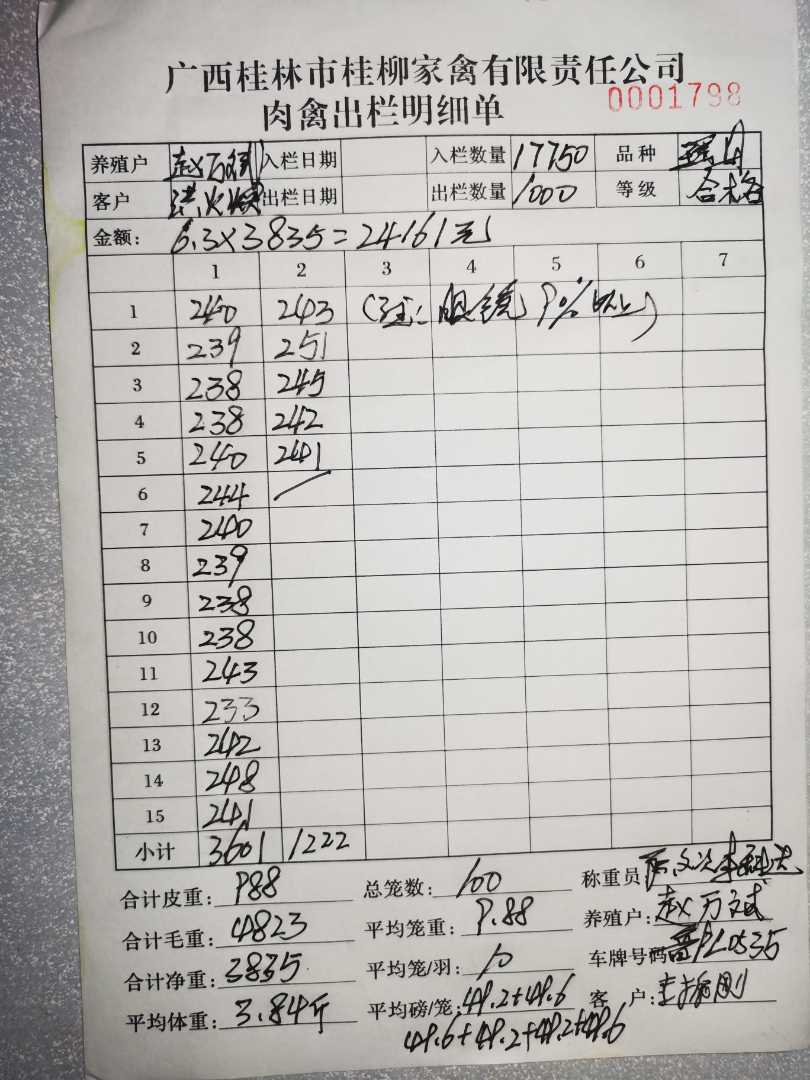 广西桂林市桂柳家禽有限责任公司
肉禽出栏明细单 0001798
养殖户 赵万斌 入栏日期 入栏数量 17750 品种
客户 出栏日期 出栏数量 1000 等级 合格
金额: 6.3×3835=24161元
1 2 3 4 5 6 7
1 240 243 (注: 眼镜 9%以上)
2 239 251
3 238 245
4 238 242
5 240 241
6 244
7 240
8 239
9 238
10 238
11 243
12 233
13 242
14 248
15 241
小计 3601 1222
合计皮重: 988 总笼数: 100 称重员
合计毛重: 4823 平均笼重: 9.88 养殖户: 赵万斌
合计净重: 3835 平均笼/羽: 10 车牌号码
平均体重: 3.84斤 平均磅/笼: 49.2+49.6 客 户:
49.6+49.2+49.2+49.6